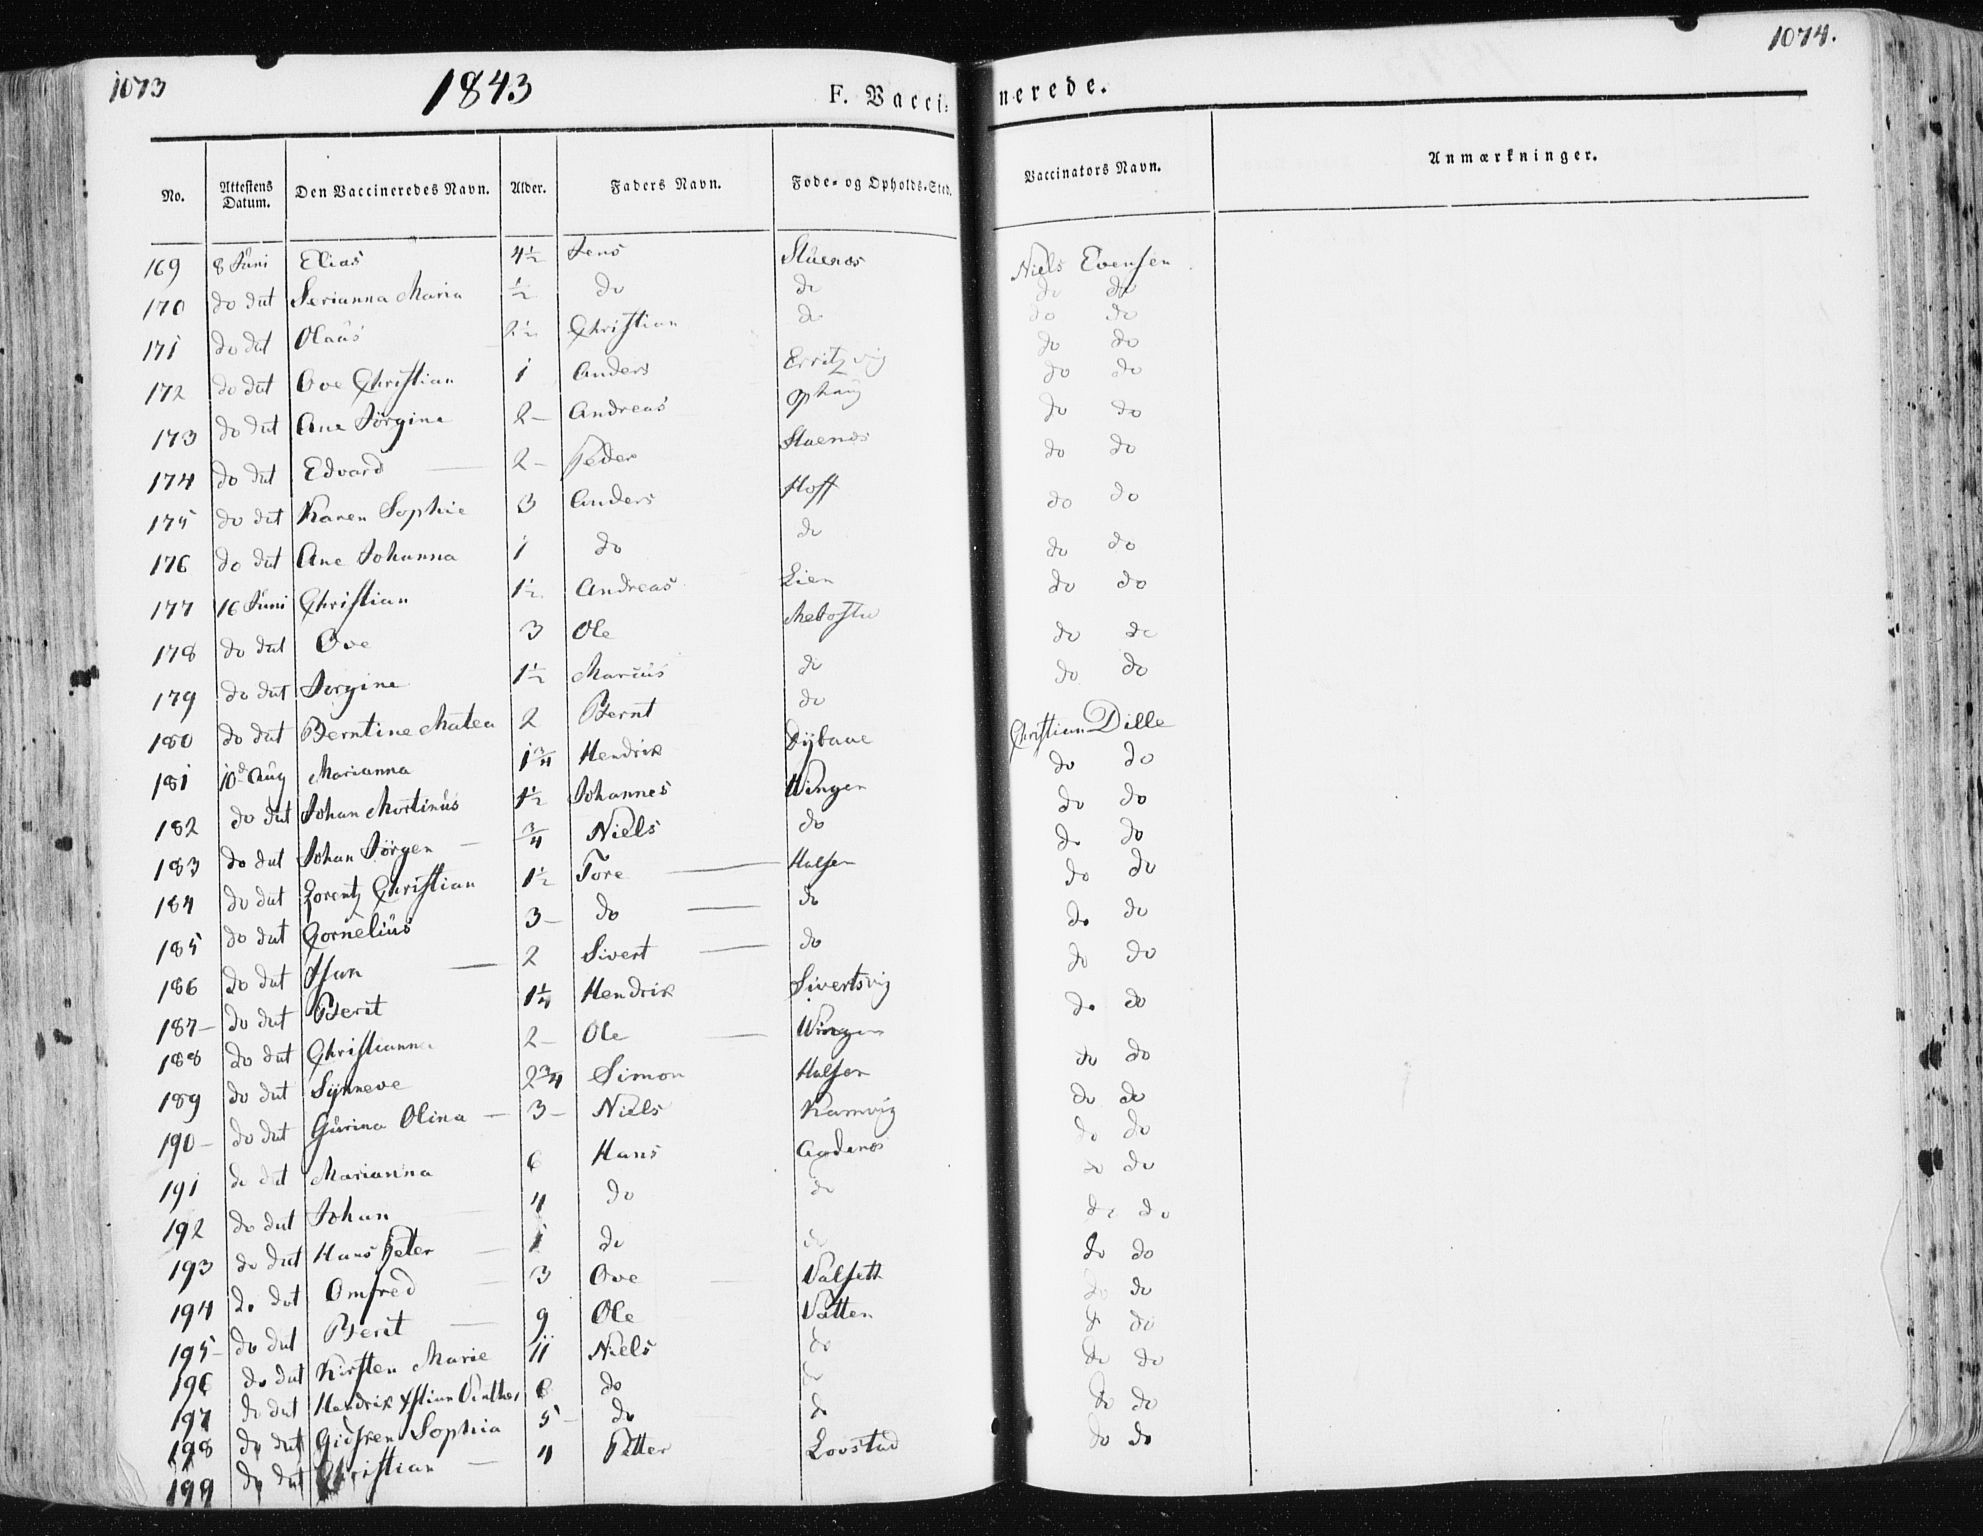 1073
1843
F. Vaccinerede.
1074.
No. Attestens Datum. Den Vaccineredes Navn. Alder. Faders Navn. Føde- og Opholds-Sted. Vaccinators Navn. Anmærkninger.
169 8 Juni Elias 4½ Jens Stuenes Niels Evensen
170 do dat Serianna Maria ½ do do do do
171 do dat Olaus 2½ Christian do do do
172 do dat Ove Christian 1 Anders Erritzvig do do
173 do dat Ane Jörgine 2- Andreas Ophaug do do
174 do dat Edvard 2- Peder Stuenes do do
175 do dat Karen Sophie 3 Anders Hoff do do
176 do dat Ane Johanna 1 do do do do
177 16 Juni Christian 1½ Andreas Lien do do
178 do dat Ove 3 Ole Mebostu do do
179 do dat Jorgine 1½ Marius do do do
180 do dat Berntine Matea 2 Bernt do do do
181 10de Aug Marianna 1¾ Hendrik Dybaue Christian Dille
182 do dat Johan Mortinus 1½ Johannes Wingen do do
183 do dat Johan Jörgen ¾ Niels do do do
184 do dat Lorentz Christian 1½ Tore Halsen do do
185 do dat Cornelius 3- do do do do
186 do dat 2 Sivert do do do
187- do dat Berit 1¼ Hendrik Sivertsvig do do
188 do dat Christianna 2- Ole Wingen do do
189 do dat Synneve 2¾ Simon Halsen do do
190- do dat Gurina Olina 3- Niels Ramvig do do
191 do dat Marianna 6 Hans do do
192 do dat Johan 4 do do do do
193 do dat Hans Peter 1 do do do do
194 do dat Omfred 3 Ove Valsett do do
195- do dat Berit 9 Ole Vatten do do
196 do dat Kirsten Marie 11 Niels do do do
197 do dat Hendrik Xstian Vinther 6 do do do do
198 do dat Gidsken Sophia 5- do do do do
199 do dat Christian 4 Petter Lovstad do do